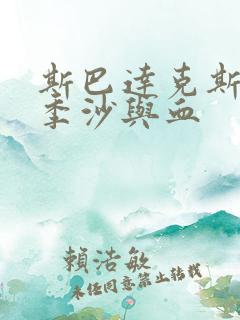 斯巴達克斯
季沙與血
賴浩敏
未經同意禁止轉載